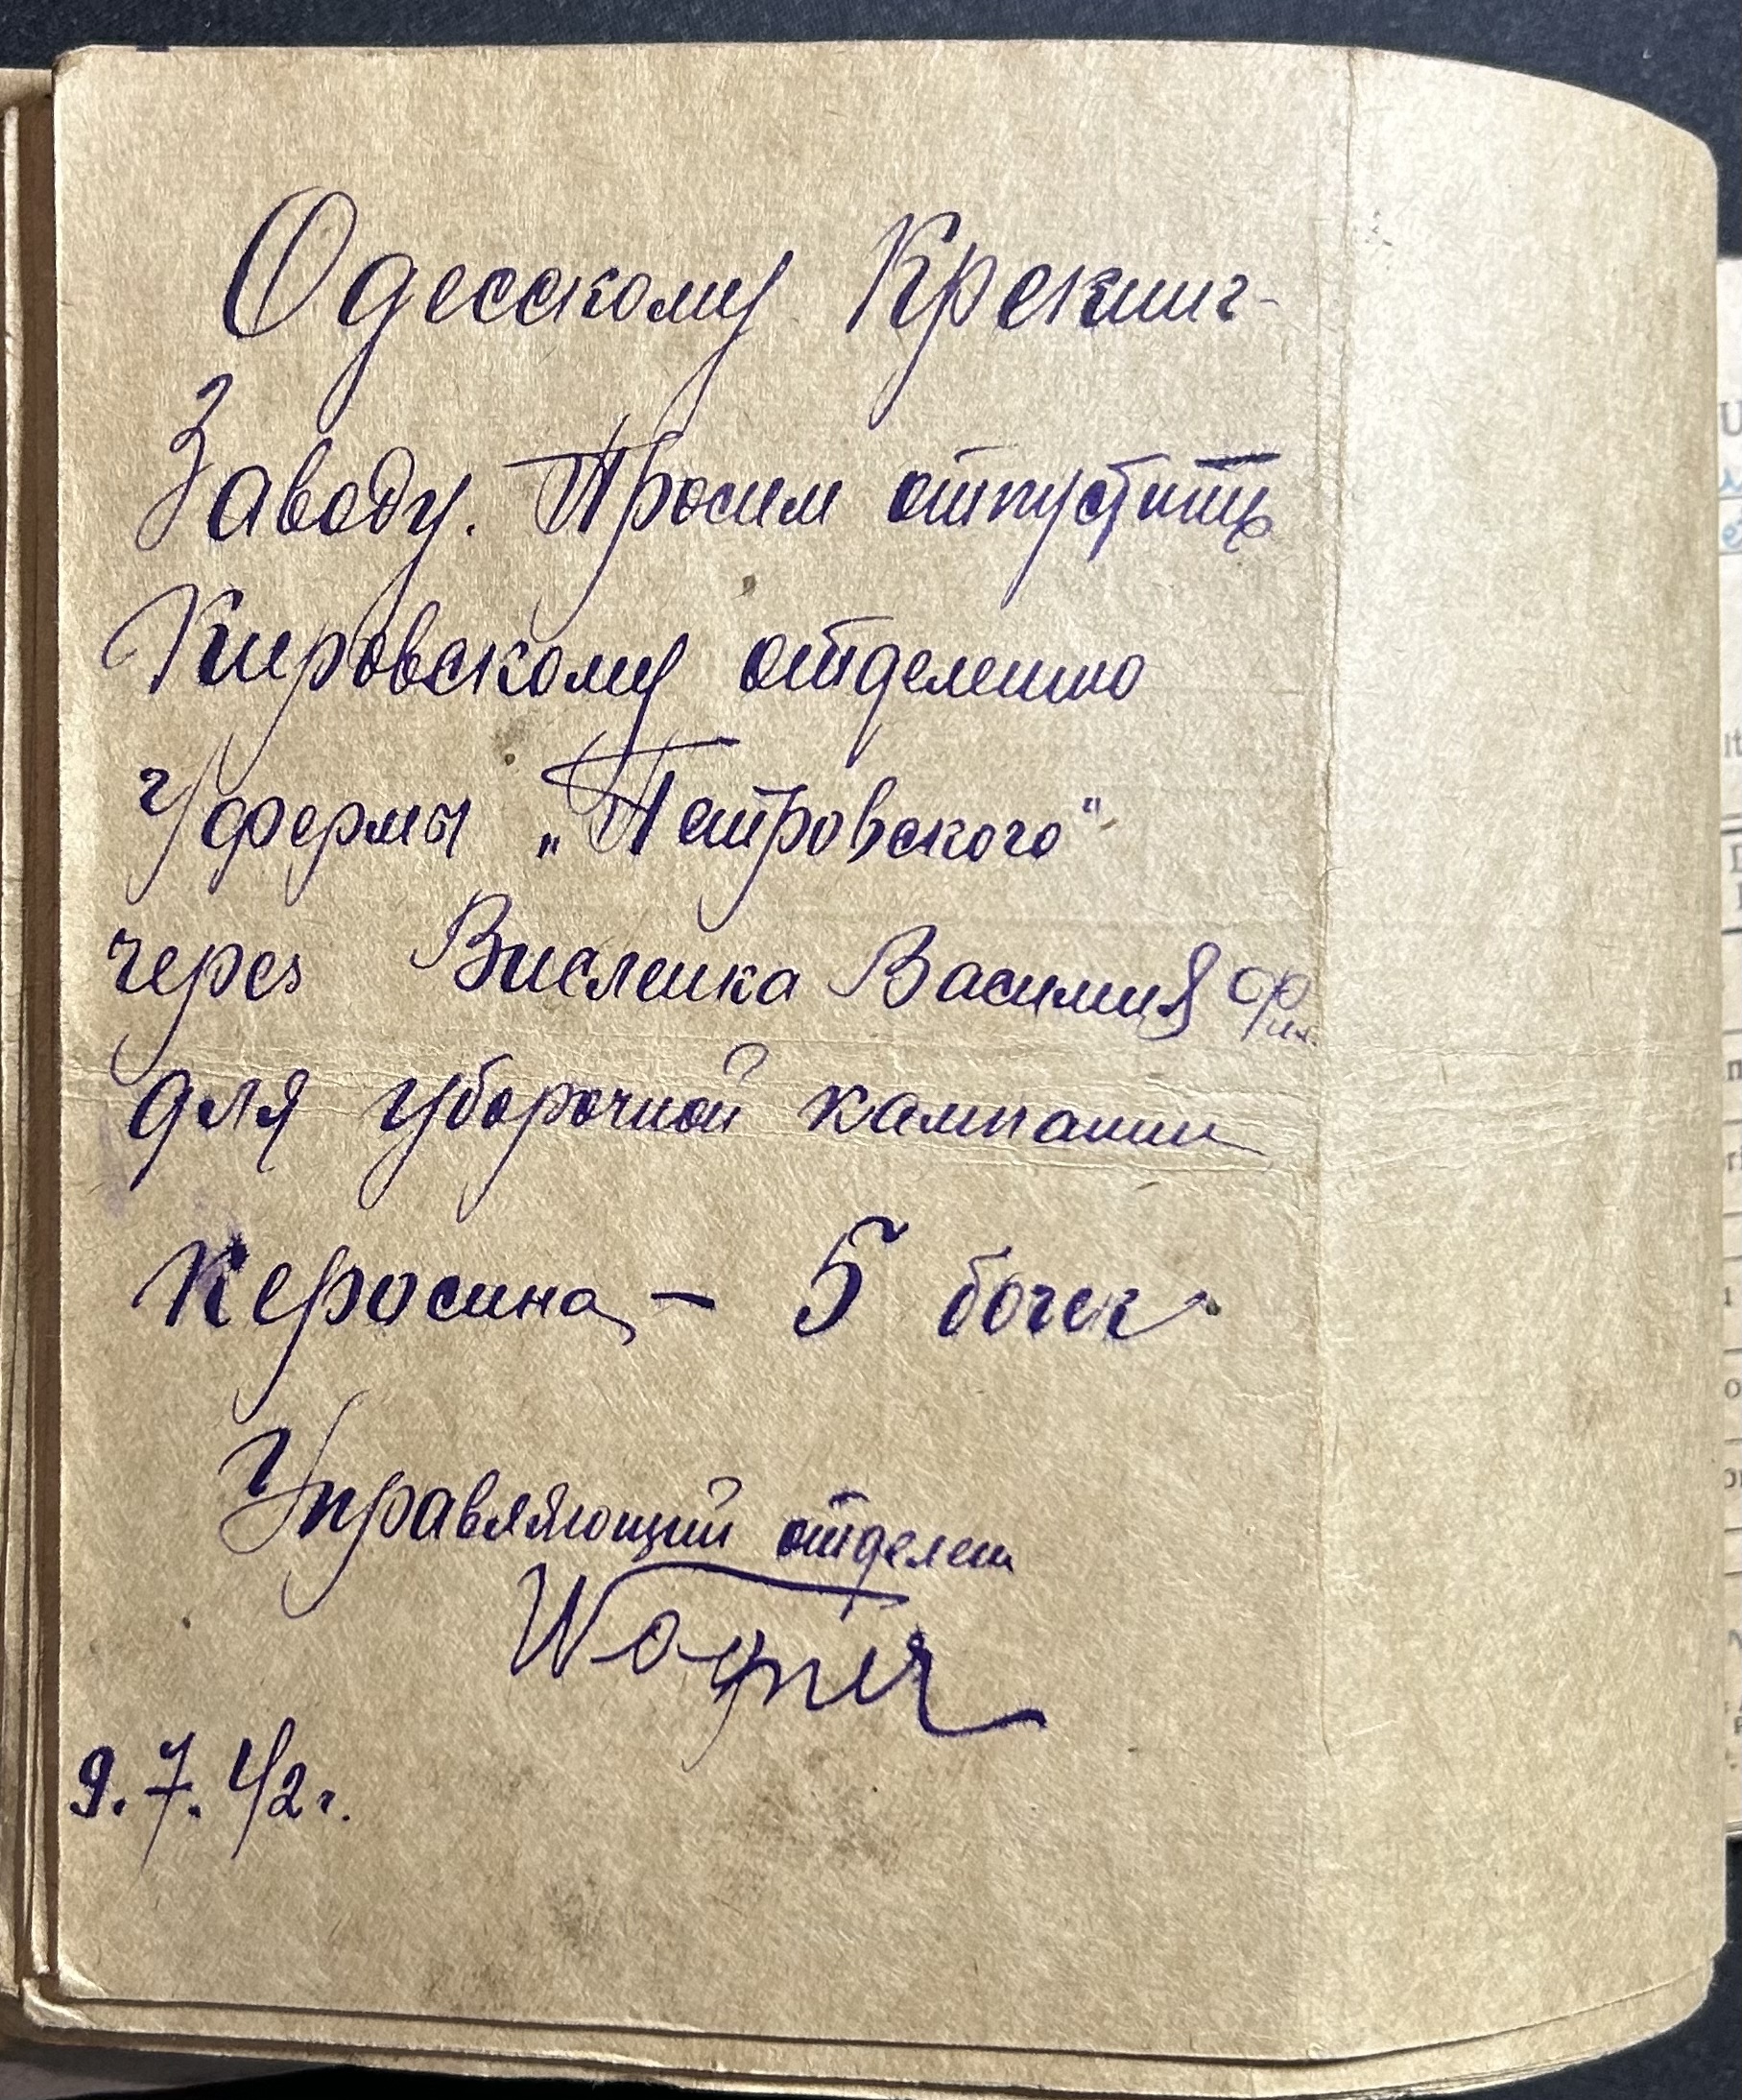 Одесскому Крекинг-
Заводу. Просим отпустить
Кировскому отделению
Уфермы „Петровского"
через Висленка Василия Фил.
для уборочной кампании
Керосина, — 5 бочек.
Управляющий отделен
9.7.42г.